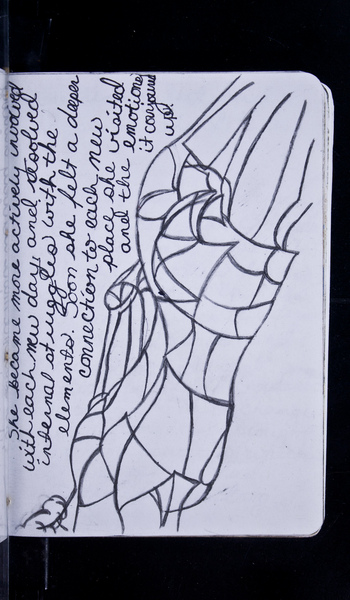 She became more actively involved
with each new day, and resolved
internal struggles with the
elements. Soon she felt a deeper
connection to each new
place she visited
and the emotions
it conjured
up!